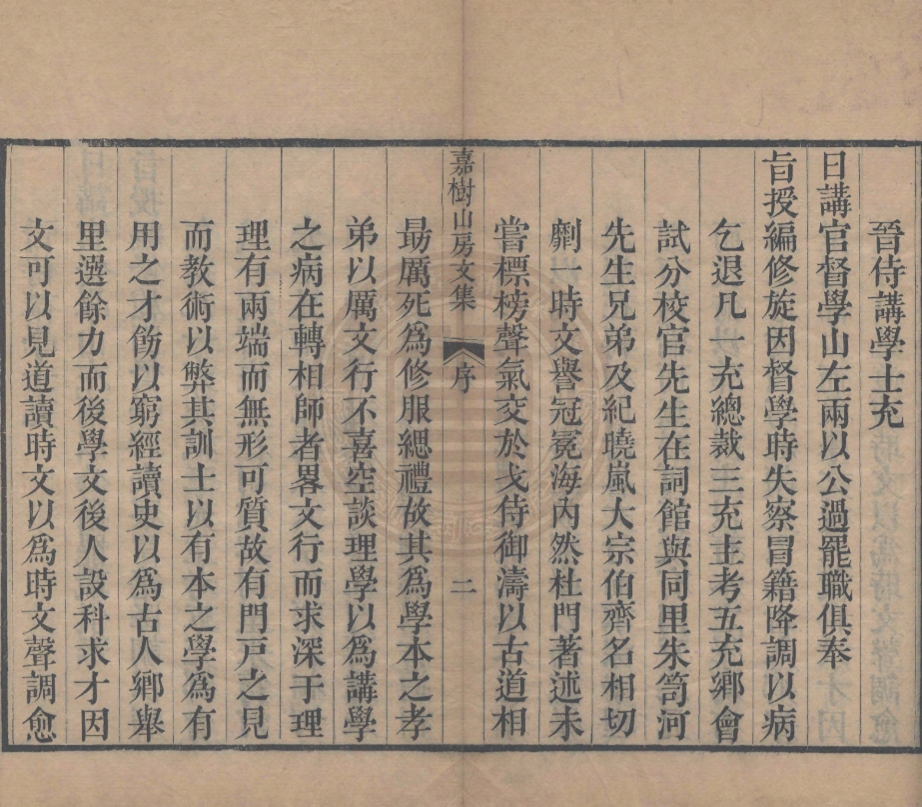 晉侍講學士充
日講官督學山左兩以公過罷職俱奉
旨授編修旋因督學時失察冒籍降調以病
乞退凡一充總裁三充主考五充鄉會
試分校官先生在詞館與同里朱笥河
先生兄弟及紀曉嵐大宗伯齊名相切
劘一時文譽冠冕海內然杜門著述未
嘗標榜聲氣交於戈侍御濤以古道相
嘉樹山房文集 序 二
最厲死爲修服緦禮故其爲學本之孝
弟以厲文行不喜空談理學以爲講學
之病在轉相師者畧文行而求深于理
理有兩端而無形可質故有門戸之見
而教術以弊其訓士以有本之學爲有
用之才飭以窮經讀史以爲古人鄉舉
里選餘力而後學文後人設科求才因
文可以見道讀時文以爲時文聲調愈